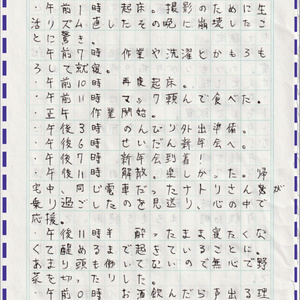 ・午前1時 起床。撮影のために生
活リズム直したその晩に崩壊したこ
とに驚き。
・午前7時 作業や洗濯とかもろも
ろして就寝。
・午前10時 再度起床。
・午前11時 マック頼んで食べた。
・正午 作業開始。
・午後3時 のんびり外出準備。
・午後6時 せいだん新年会へ。
・午後7時 新年会到着!
・午後11時 解散。楽しかった。帰
宅中、同じ電車だったナトリさん
乗り過ごしたのを見送り、心の中で
応援。
・午後11時半 酔ったまま寝たくな
くて醒めるまで起きていることに。
あまり頭も働いてないので無心で野
菜を切ったりした。
・午前0時 お酒飲んだら声出る理